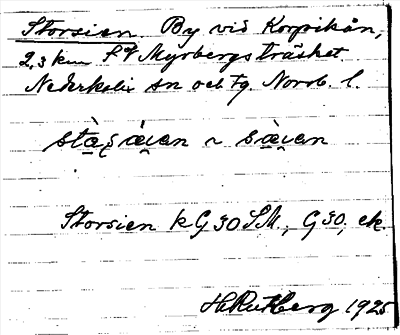 Storsien. By vid Korpikån,
2,3 km S of Myrbergsträsket
Nederkalix sn och fg. Norrb. l.
Storsien k G 30 SM., G 30, ek.
H. Rutberg 1925